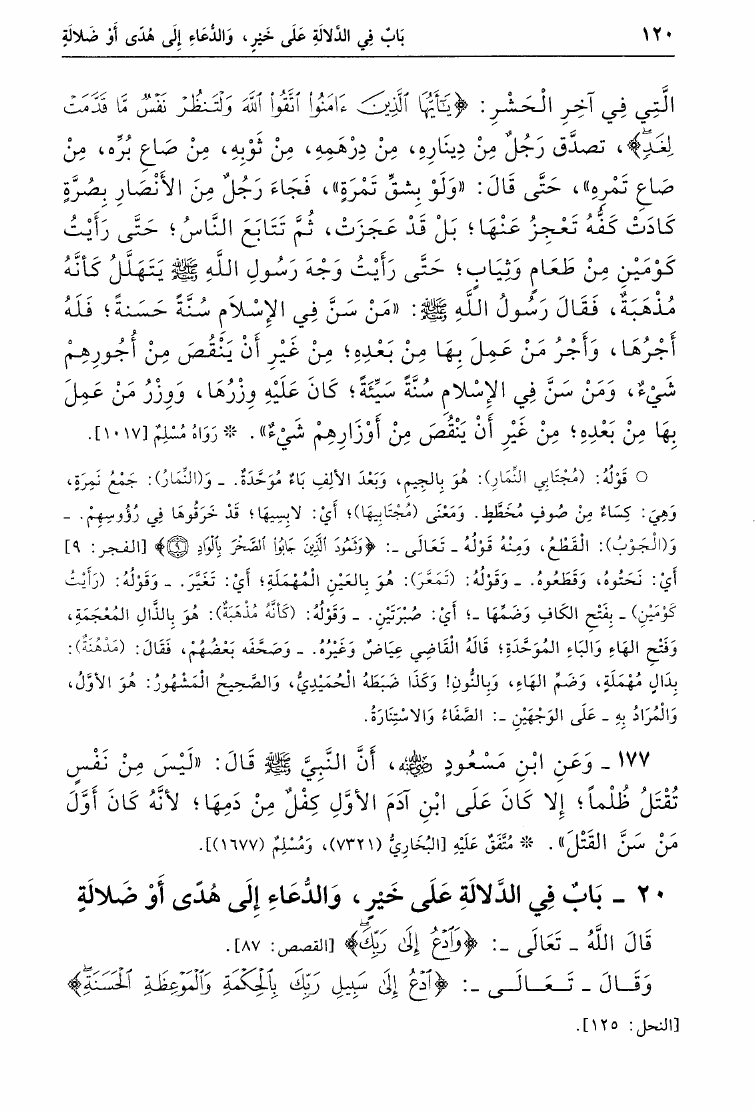 ١٢٠ بَابٌ فِي الدَّلالَةِ عَلَى خَيْرٍ، وَالدُّعَاءِ إِلَى هُدًى أَوْ ضَلالَةٍ
الَّتِي فِي آخِرِ الْحَشْرِ: ﴿يَٰٓأَيُّهَا ٱلَّذِينَ ءَامَنُوا۟ ٱتَّقُوا۟ ٱللَّهَ وَلْتَنظُرْ نَفْسٌ مَّا قَدَّمَتْ
لِغَدٍۖ﴾، تصدَّق رَجُلٌ مِنْ دِينَارِهِ، مِنْ دِرْهَمِهِ، مِنْ ثَوْبِهِ، مِنْ صَاعِ بُرِّه، مِنْ
صَاعِ تَمْرِهِ»، حَتَّى قَالَ: «وَلَوْ بِشقِّ تَمْرَةٍ»، فَجَاءَ رَجُلٌ مِنَ الأَنْصَارِ بِصُرَّةٍ
كَادَتْ كَفُّهُ تَعْجِزُ عَنْهَا؛ بَلْ قَدْ عَجَزَتْ، ثُمَّ تَتَابَعَ النَّاسُ؛ حَتَّى رَأَيْتُ
كَوْمَيْنِ مِنْ طَعَامٍ وَثِيَابٍ؛ حَتَّى رَأَيْتُ وَجْهَ رَسُولِ اللَّهِ ﷺ يَتَهَلَّلُ كَأَنَّهُ
مُذْهَبَةٌ، فَقَالَ رَسُولُ اللَّهِ ﷺ: «مَنْ سَنَّ فِي الإِسْلاَمِ سُنَّةً حَسَنةً؛ فَلَهُ
أَجْرُهَا، وَأَجْرُ مَنْ عَمِلَ بِهَا مِنْ بَعْدِهِ؛ مِنْ غَيْرِ أَنْ يَنْقُصَ مِنْ أُجُورِهِمْ
شَيْءٌ، وَمَنْ سَنَّ فِي الإِسْلامِ سُنَّةً سَيِّئَةً؛ كَانَ عَلَيْهِ وِزْرُهَا، وَوِزْرُ مَنْ عَمِلَ
بِهَا مِنْ بَعْدِهِ؛ مِنْ غَيْرِ أَنْ يَنْقُصَ مِنْ أَوْزَارِهِمْ شَيْءٌ». * رَوَاهُ مُسْلِمٌ [١٠١٧].
○ قَوْلُهُ: (مُجْتَابِي النِّمَارِ): هُوَ بِالجِيمِ، وَبَعْدَ الأَلِفِ بَاءٌ مُوَحَّدَةٌ. ـ وَ(النِّمَارُ): جَمْعُ نَمِرَةٍ،
وَهِيَ: كِسَاءٌ مِنْ صُوفٍ مُخَطَّطٍ. وَمَعْنَى (مُجْتَابِيهَا)؛ أَيْ: لابِسِيهَا؛ قَدْ خَرَقُوهَا فِي رُؤُوسِهِمْ. ـ
وَ(الْجَوْبُ): الْقَطْعُ، وَمِنْهُ قَوْلُهُ ـ تَعَالَى ـ: ﴿وَثَمُودَ ٱلَّذِينَ جَابُوا۟ ٱلصَّخْرَ بِٱلْوَادِ ۝٩﴾ [الفجر: ٩]
أَيْ: نَحَتُوهُ، وَقَطَعُوهُ. ـ وَقَوْلُهُ: (تَمَعَّرَ): هُوَ بِالعَيْنِ الْمُهْمَلَةِ؛ أَيْ: تَغَيَّرَ. ـ وَقَوْلُهُ: (رَأَيْتُ
كَوْمَيْنِ) ـ بِفَتْحِ الكَافِ وَضَمِّهَا ـ؛ أَيْ: صُبْرَتَيْنِ. ـ وَقَوْلُهُ: (كَأَنَّهُ مُذْهَبَةٌ): هُوَ بِالذَّالِ المُعْجَمَةِ،
وَفَتْحِ الهَاءِ وَالبَاءِ المُوَحَّدَةِ؛ قَالَهُ الْقَاضِي عِيَاضٌ وَغَيْرُهُ. ـ وَصَحَّفَه بَعْضُهُمْ، فَقَالَ: (مَدْهُنَةٌ):
بِدَالٍ مُهْمَلَةٍ، وَضَمِّ الهَاءِ، وَبِالنُّونِ! وَكَذَا ضَبَطَهُ الْحُمَيْدِيُّ، وَالصَّحِيحُ الْمَشْهُورُ: هُوَ الأَوَّلُ،
وَالْمُرَادُ بِهِ ـ عَلَى الوَجْهَيْنِ ـ: الصَّفَاءُ وَالاسْتِنَارَةُ.
١٧٧ ـ وَعَنِ ابْنِ مَسْعُودٍ رضي الله عنه، أَنَّ النَّبِيَّ ﷺ قَالَ: «لَيْسَ مِنْ نَفْسٍ
تُقْتَلُ ظُلْماً؛ إِلا كَانَ عَلَى ابْنِ آدَمَ الأَوَّلِ كِفْلٌ مِنْ دَمِهَا؛ لأَنَّهُ كَانَ أَوَّلَ
مَنْ سَنَّ القَتْلَ». * مُتَّفَقٌ عَلَيْهِ [البُخَارِيُّ (٧٣٢١)، وَمُسْلِمٌ (١٦٧٧)].
٢٠ ـ بَابٌ فِي الدَّلالَةِ عَلَى خَيْرٍ، وَالدُّعَاءِ إِلَى هُدًى أَوْ ضَلالَةٍ
قَالَ اللَّهُ ـ تَعَالَى ـ: ﴿وَٱدْعُ إِلَىٰ رَبِّكَۖ﴾ [القصص: ٨٧].
وَقَــالَ ـ تَــعَــالَــى ـ: ﴿ٱدْعُ إِلَىٰ سَبِيلِ رَبِّكَ بِٱلْحِكْمَةِ وَٱلْمَوْعِظَةِ ٱلْحَسَنَةِۖ﴾
[النحل: ١٢٥].